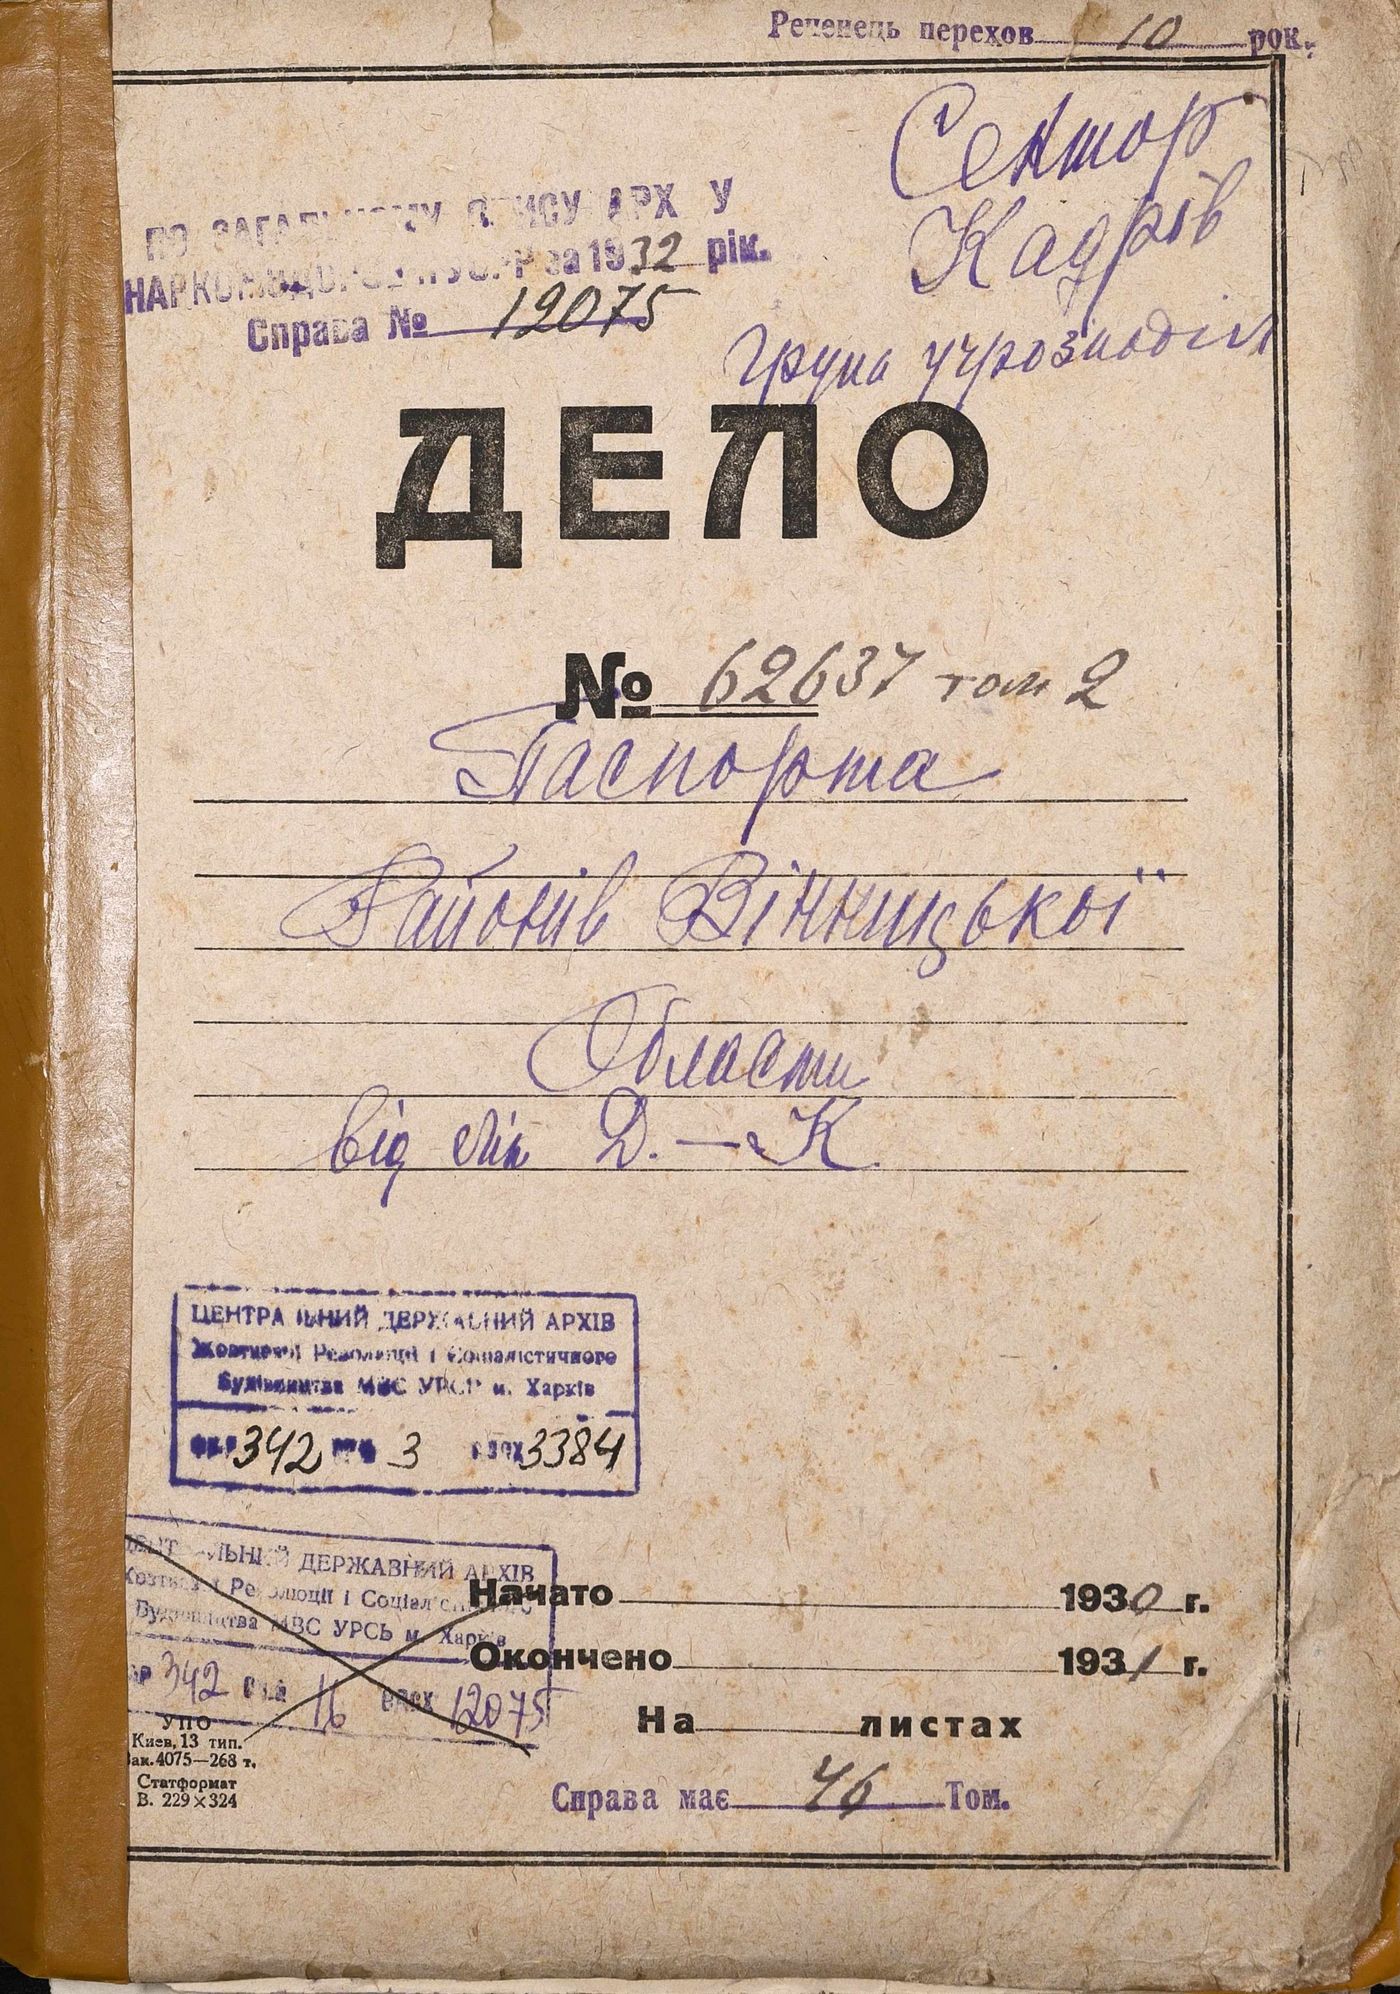 Реченець перехов 10 рок.
Сектор
Кадрів
ПО ЗАГАЛЬНОМУ ОПИСУ АРХ У
НАРКОМЗДОРОВ'Я УСРР за 1932 рік.
Справа № 12075
Група учрозподіл
ДЕЛО
№ 62637 том 2
Паспорта
Районів Вінницької
Области
від літ Д. — К.
ЦЕНТРАЛЬНИЙ ДЕРЖАВНИЙ АРХІВ
Жовтневої Революції і Соціалістичного
Будівництва МВС УРСР м. Харків
342 3 3384
ЦЕНТРАЛЬНИЙ ДЕРЖАВНИЙ АРХІВ
Жовтневої Революції і Соціалістичного
Будівництва МВС УРСР м. Харків
342 16 12075
Начато 1930 г.
Окончено 1931 г.
На листах
УПО
Киев, 13 тип.
Зак. 4075—268 т.
Статформат
В. 229×324
Справа має 46 Том.